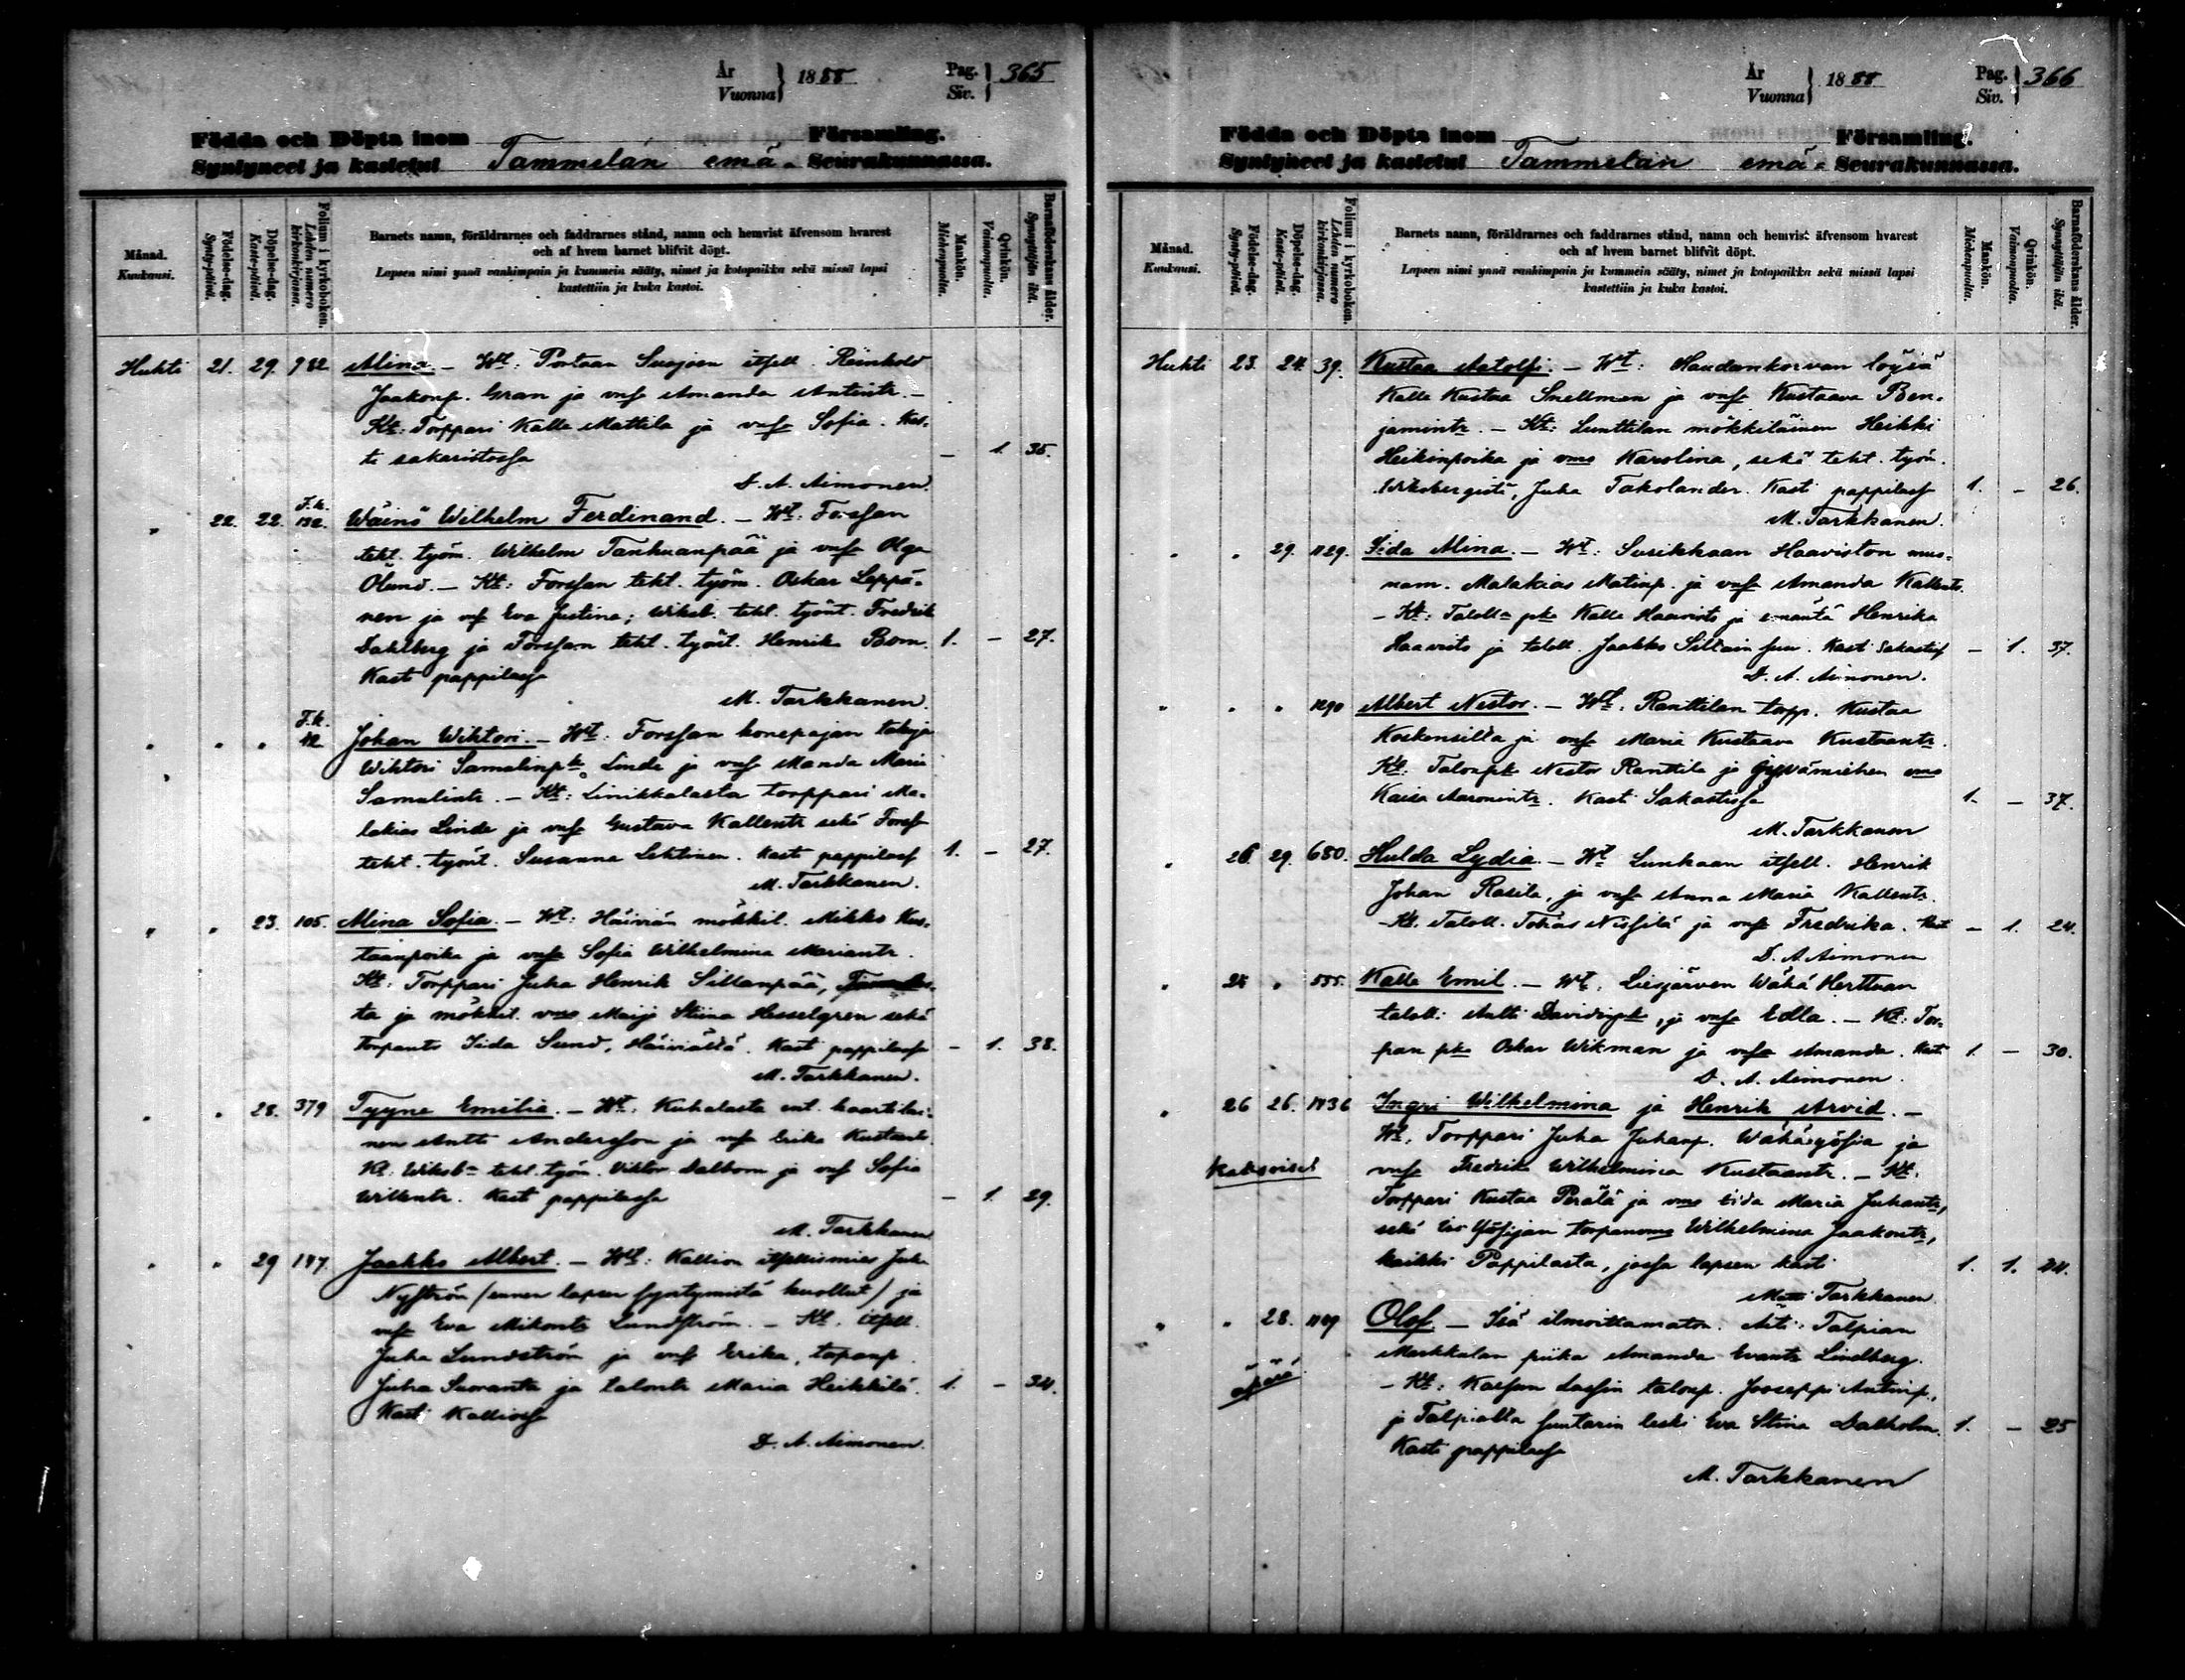 År
Vuonna } 1888
Pag.
Siv. } 365
Födda och Döpta inom Församling.
Syntyneet ja kastetut Tammelan emä- Seurakunnassa.
Månad.
Kuukausi.
Födelse-dag.
Synty-päivä.
Döpelse-dag.
Kaste-päivä.
Folium i kyrkoboken.
Lehden numero kirkonkirjassa.
Barnets namn, föräldrarnes och faddrarnes stånd, namn och hemvist äfvensom hvarest
och af hvem barnet blifvit döpt.
Lapsen nimi ynnä vanhimpain ja kummein sääty, nimet ja kotopaikka sekä missä lapsi
kastettiin ja kuka kastoi.
Mankön.
Miehenpuolta.
Qvinkön.
Vaimonpuolta.
Barnaföderskans ålder.
Synnyttäjän ikä.
Huhti 21. 29. 782 Mina - Wt: Portaan Susjoen itsell. Reinhold
Jaakonp. Gran ja vmsa Amanda Antintr. -
Kt: Torppari Kalle Mattila ja vmsa Sofia. Kas-
ti sakaristossa - 1. 35.
D. A. Aimonen.
" 22. 22. F.k. 132. Wäinö Wilhelm Ferdinand. - Wt: Forssan
teht. työm. Wilhelm Tanhuanpää ja vmsa Olga
Ölund. - Kt: Forssan teht. työm. Oskar Leppä-
nen ja vmsa Eva Justina; Wiksb. teht. työnt. Fredrik
Dahlberg ja Forssan teht. työnt. Henrika Bom. 1. - 27.
Kast pappilassa
M. Tarkkanen.
" " " F.k. 42 Johan Wiktori. - Wt: Forssan konepajan tekijä
Wiktori Samulinpk. Linde ja vmsa Manda Maria
Samulintr. - Kt: Linikkalasta torppari Ma-
lakias Linde ja vmsa Gustava Kallentr sekä Forss
teht. työnt. Susanna Lehtinen. Kasti pappilass 1. - 27.
M. Tarkkanen.
" " 23. 105. Mina Sofia. - Wt: Häiviän mökkil. Mikko Kus-
taanpoika ja vmsa Sofia Wilhelmina Mariantr.
Kt: Torppari Juha Henrik Sillanpää,
ta ja mökkil. vmo Maija Stiina Hesselgren sekä
torpantr Iida Sund, Häiviältä. Kast pappilassa - 1. 38.
M. Tarkkanen.
" " 28. 379 Tyyne Emilia. - Wt: Kuhalasta ent. kaartilai-
nen Antti Andersson ja vmsa Erika Kustaantr.
Kt: Wiksb. teht. työm. Viktor Dalbom ja vmsa Sofia
Willentr. Kast pappilassa - 1. 29.
M. Tarkkanen
" " 29 187. Jaakko Albert. - Wt: Kallion itsellismies Juha
Nyström (ennen lapsen syntymistä kuollut) ja
vmsa Eva Mikontr Lundström. - Kt. itsell.
Juha Lundström ja vmsa Erika, tapanp.
Juha Suvanta ja talontr Maria Heikkilä. 1. - 34.
Kasti Kalliossa
D. A. Aimonen.
År
Vuonna } 1888
Pag.
Siv. } 366
Födda och Döpta inom Församling.
Syntyneet ja kastetut Tammelan emä- Seurakunnassa.
Månad.
Kuukausi.
Födelse-dag.
Synty-päivä.
Döpelse-dag.
Kaste-päivä.
Folium i kyrkoboken.
Lehden numero kirkonkirjassa.
Barnets namn, föräldrarnes och faddrarnes stånd, namn och hemvist äfvensom hvarest
och af hvem barnet blifvit döpt.
Lapsen nimi ynnä vanhimpain ja kummein sääty, nimet ja kotopaikka sekä missä lapsi
kastettiin ja kuka kastoi.
Mankön.
Miehenpuolta.
Qvinkön.
Vaimonpuolta.
Barnaföderskans ålder.
Synnyttäjän ikä.
Huhti 23. 24. 39. Kustaa Aatolfi. - Wt: Haudankorvan löysä
Kalle Kustaa Snellman ja vmsa Kustaava Ben-
jamintr. - Kt: Lunttilan mökkiläinen Heikki
Heikinpoika ja vmo Karolina, sekä teht. työm.
Wiksbergistä, Juha Takolander. Kasti pappilass 1. - 26.
M. Tarkkanen.
" " 29. 1129. Iida Mina. - Wt: Susikkaan Haaviston
Malakias Matinp. ja vmsa Amanda Kallentr.
- Kt: Taloll. pka Kalle Haavisto ja emäntä Henrika
Haavisto ja taloll. Jaakko Sillain Kast Sakastiss - 1. 37.
D. A. Aimonen.
" " " 1290 Albert Nestor. - Wt: Ranttilan torp. Kustaa
Koskensilta ja vmsa Maria Kustaava Kustaantr.
Kt: Talonpk Nestor Ranttila ja hyvämiehen vmo
Kaisa Aaronintr. Kast Sakastissa 1. - 37.
M. Tarkkanen
" 26. 29. 680. Hulda Lydia. - Wt Lunkaan itsell. Henrik
Johan Rasila, ja vmsa Anna Maria Kallentr.
- Kt. Taloll. Tobias Nissilä ja vmsa Fredrika. Kast - 1. 24.
D. A. Aimonen
" 25 " 555. Kalle Emil. - Wt. Liesjärven Wähä Herttuan
taloll: Antti Davidinpk, ja vmsa Edla. - Kt: Tor-
pan pka Oskar Wikman ja vmsa Amanda. Kast. 1. - 30.
D. A. Aimonen.
" 26 26. 1436 Ingri Wilhelmina ja Henrik Arvid. -
Wt. Torppari Juha Juhanp. Wähäyösiä ja
kaksoiset vmsa Fredrika Wilhelmina Kustaantr. - Kt:
Torppari Kustaa Perälä ja vmo Eida Maria Juhantr,
sekä Iso Yösijan torpanvmo Wilhelmina Jaakontr,
kaikki Pappilasta, jossa lapsen kasti 1. 1. 44.
Matti Tarkkanen.
" " 28. 1109 Olof. - Isä ilmoittamaton. Äiti: Talpian
Markkulan piika Amanda Evantr Lindberg.
äpärä - Kt: Kaesan Lassin talonp. Jooseppi Antinp.,
ja Talpialta suutarin leski Eva Stina Dalholm. 1. - 25
Kasti pappilassa
M. Tarkkanen